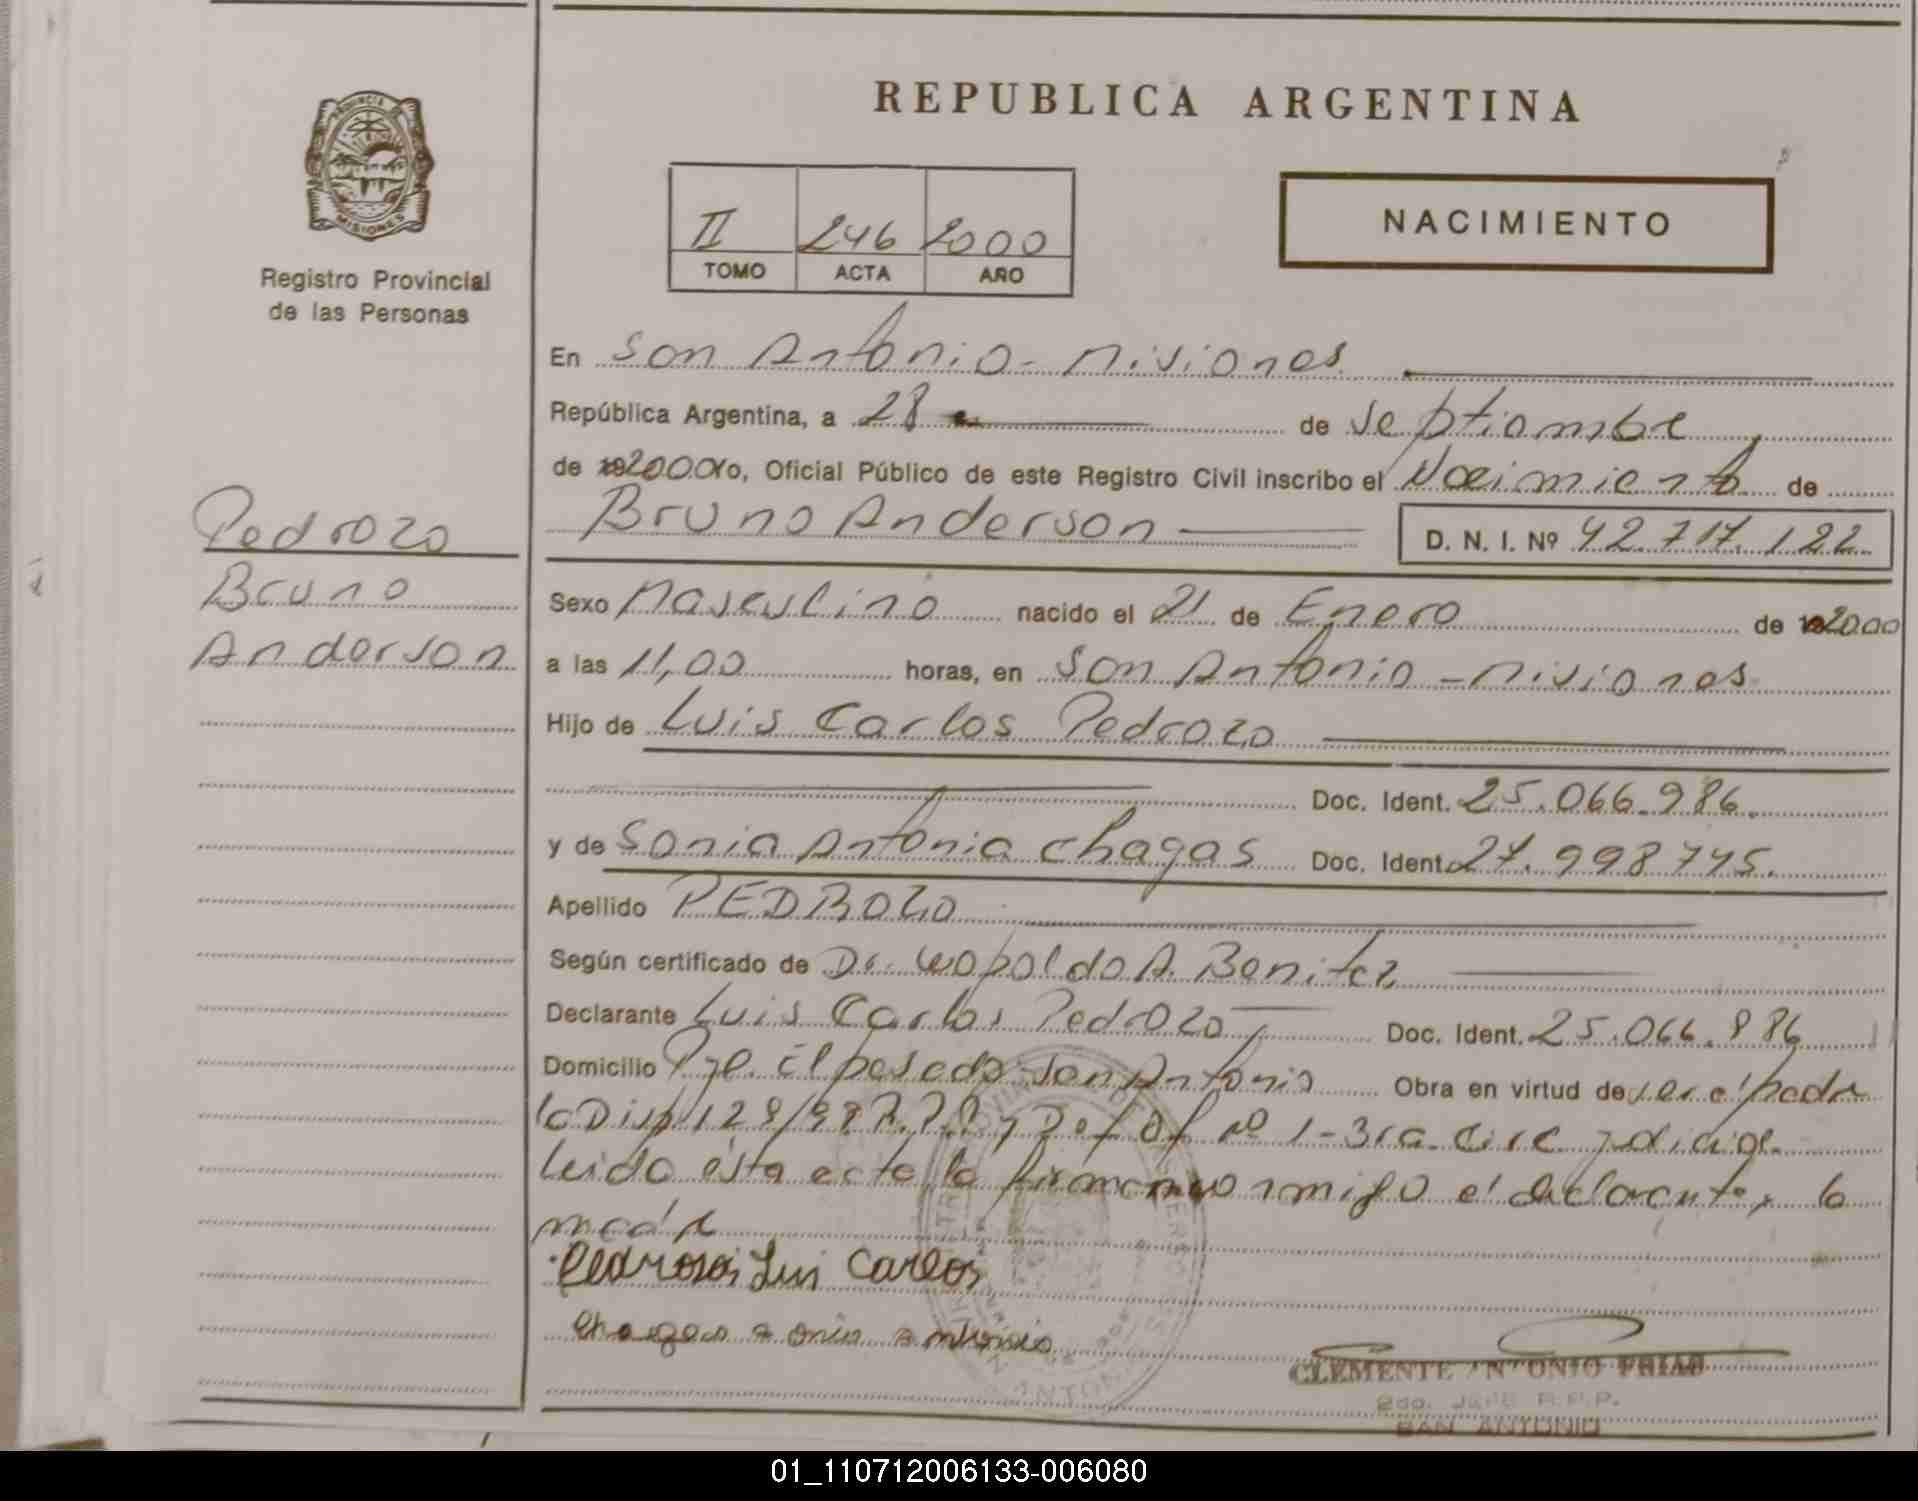 REPUBLICA ARGENTINA
PROVINCIA DE
MISIONES
Registro Provincial
de las Personas
II 246 2000
TOMO ACTA AÑO
NACIMIENTO
En San Antonio - Misiones
República Argentina, a 28 de Septiembre
de 2000 yo, Oficial Público de este Registro Civil inscribo el Nacimiento de
Bruno Anderson D. N. I. Nº 42.717.122
Pedrozo
Bruno
Anderson
Sexo Masculino nacido el 21 de Enero de 2000
a las 11,00 horas, en San Antonio - Misiones
Hijo de Luis Carlos Pedrozo
Doc. Ident. 25.066.986
y de Sonia Antonia Chagas Doc. Ident. 27.998745.
Apellido PEDROZO
Según certificado de Dr. Leopoldo A. Benitez
Declarante Luis Carlos Pedrozo Doc. Ident. 25.066.986
Domicilio Pje. El pesado San Antonio Obra en virtud de ser el padre
Nº 1 - 3ra. Circ. Judicial
Leida ésta acta, la firman conmigo el declarante y la
madre
Pedroso Luis Carlos
Chagas Sonia Antonia
CLEMENTE ANTONIO FRIAS
2do. Jefe R.P.P.
SAN ANTONIO
01_110712006133-006080